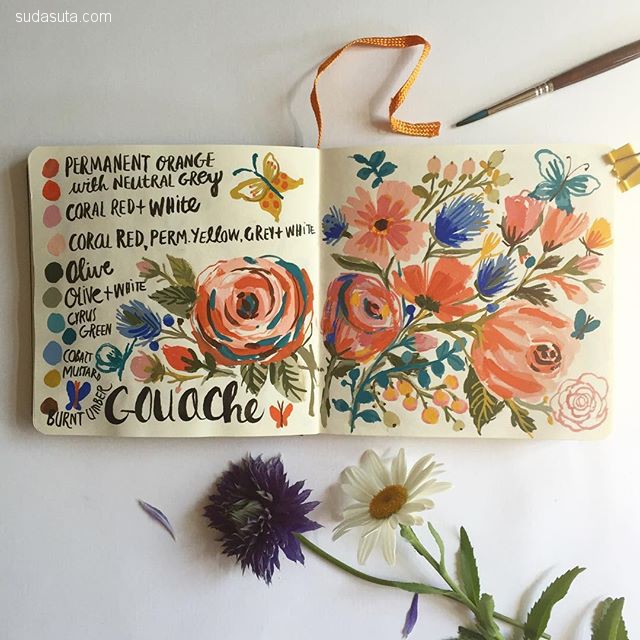 sudasuta.com
PERMANENT ORANGE
with NEUTRAL GREY
CORAL RED + WHITE
CORAL RED, PERM. YELLOW, GREY + WHITE
OLIVE
OLIVE + WHITE
CYRUS
GREEN
COBALT
MUSTARD
BURNT UMBER
GOUACHE